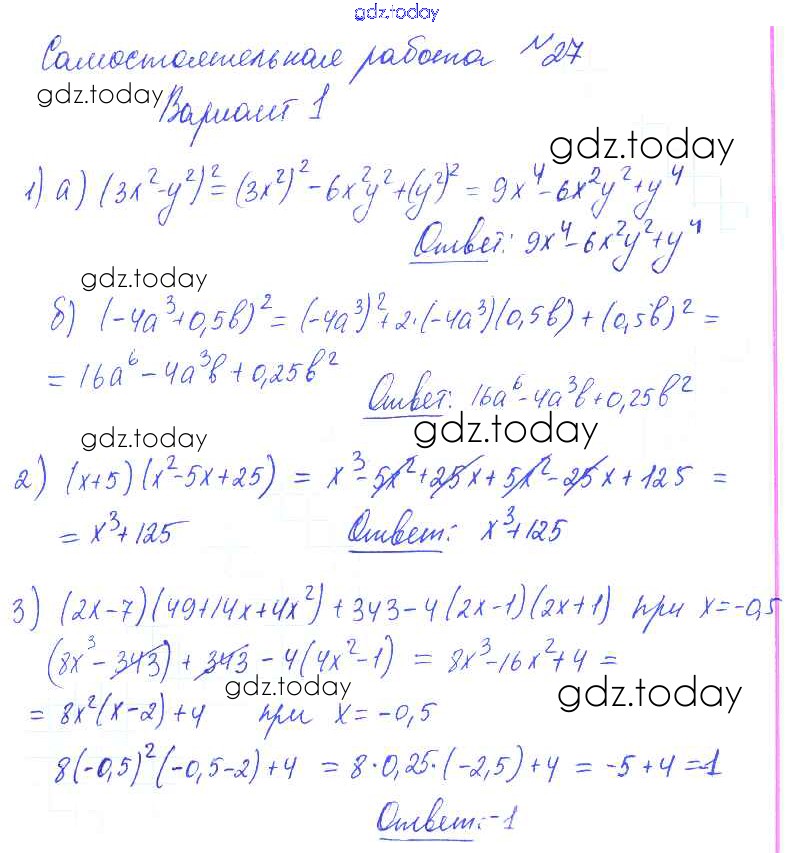 gdz.today
Самостоятельная работа №27
gdz.today
Вариант 1
gdz.today
1) а) (3x²-y²)² = (3x²)² - 6x²y² + (y²)² = 9x⁴ - 6x²y² + y⁴
Ответ: 9x⁴ - 6x²y² + y⁴
gdz.today
б) (-4a³+0,5b)² = (-4a³)² + 2·(-4a³)(0,5b) + (0,5b)² =
= 16a⁶ - 4a³b + 0,25b²
Ответ: 16a⁶ - 4a³b + 0,25b²
gdz.today gdz.today
2) (x+5)(x²-5x+25) = x³ - 5x² + 25x + 5x² - 25x + 125 =
= x³+125 Ответ: x³+125
3) (2x-7)(49+14x+4x²) + 343 - 4(2x-1)(2x+1) при x=-0,5
(8x³ - 343) + 343 - 4(4x²-1) = 8x³ - 16x² + 4 =
gdz.today gdz.today
= 8x²(x-2)+4 при x = -0,5
8(-0,5)²(-0,5-2)+4 = 8·0,25·(-2,5)+4 = -5+4 = -1
Ответ: -1